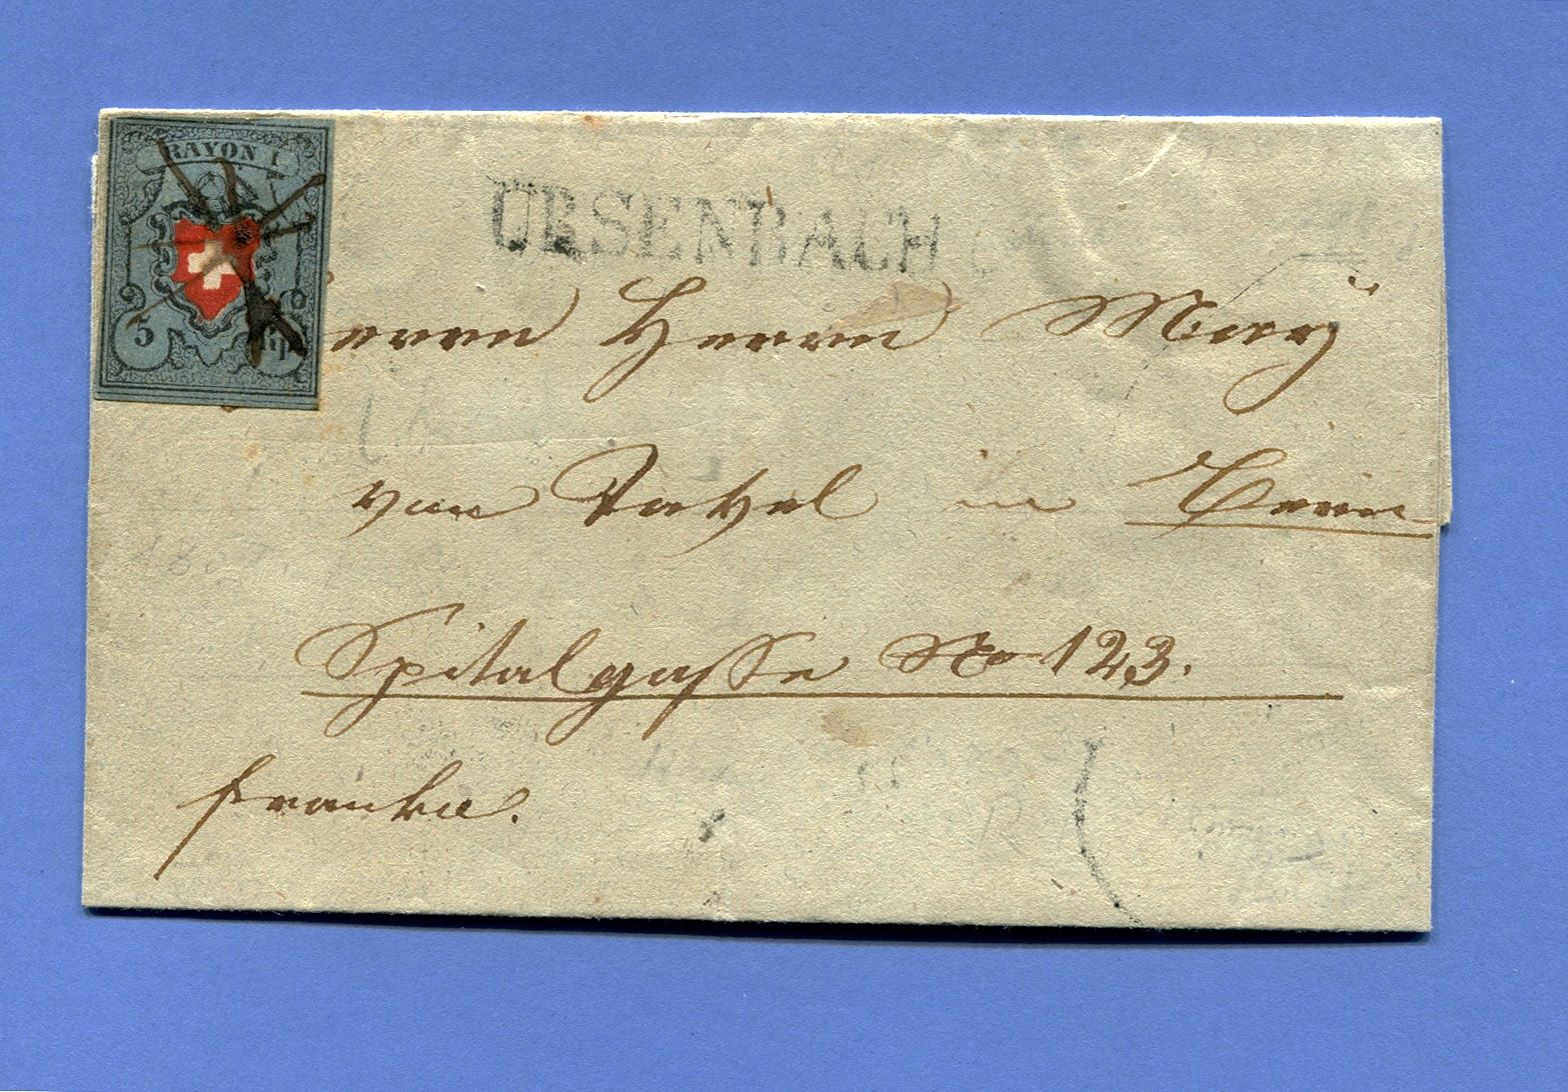 RAYON I
5 Rp
URSENBACH
errn Herrn
von Tavel in Bern
Spitalgasse No 123.
franko.